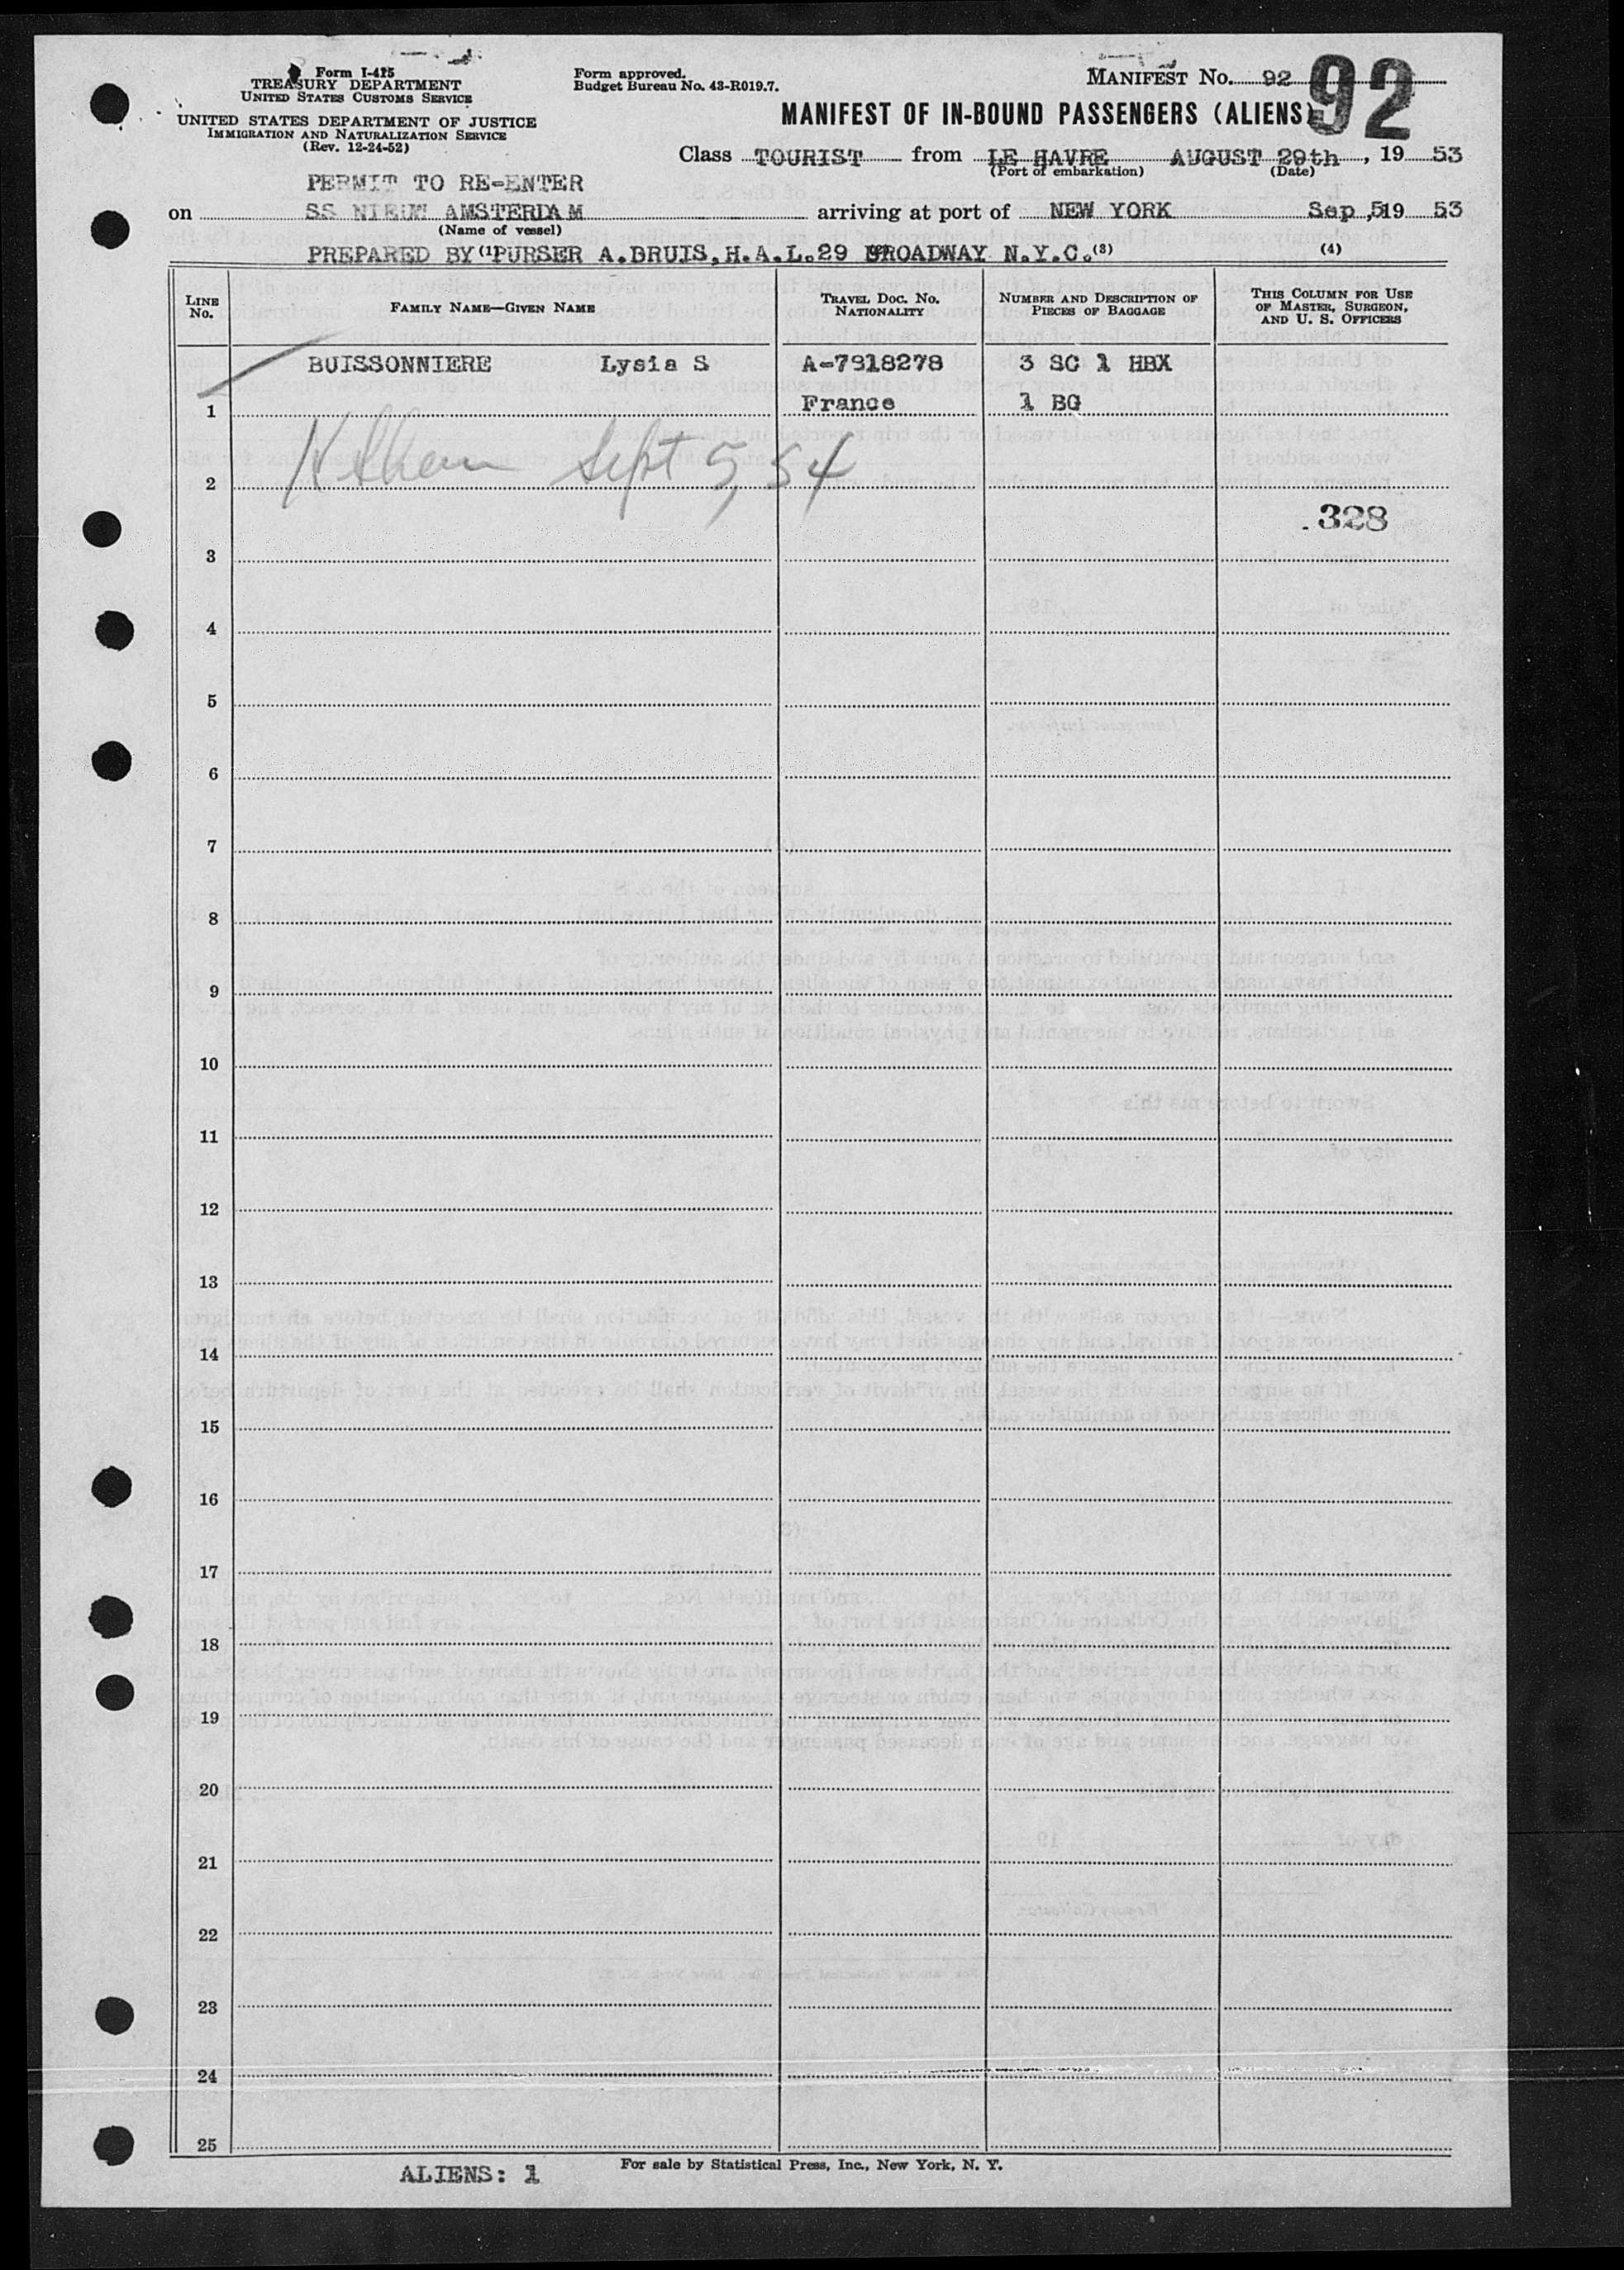 Form I-415
TREASURY DEPARTMENT
UNITED STATES CUSTOMS SERVICE
UNITED STATES DEPARTMENT OF JUSTICE
IMMIGRATION AND NATURALIZATION SERVICE
(Rev. 12-24-52)
Form approved.
Budget Bureau No. 43-R019.7.
MANIFEST No. 92
92
MANIFEST OF IN-BOUND PASSENGERS (ALIENS)
Class TOURIST from LE HAVRE AUGUST 29th, 19 53
(Port of embarkation) (Date)
PERMIT TO RE-ENTER
on SS NIEUW AMSTERDAM arriving at port of NEW YORK Sep 5, 19 53
(Name of vessel)
PREPARED BY (1) PURSER A.BRUIS, H.A.L. 29 BROADWAY N.Y.C. (3) (4)
LINE No. FAMILY NAME—GIVEN NAME TRAVEL DOC. NO. NATIONALITY NUMBER AND DESCRIPTION OF PIECES OF BAGGAGE THIS COLUMN FOR USE OF MASTER, SURGEON, AND U. S. OFFICERS
BUISSONNIERE Lysia S A-7918278 3 SC 1 HBX
1 France 1 BG
2 Sept 5, 54
328
3
4
5
6
7
8
9
10
11
12
13
14
15
16
17
18
19
20
21
22
23
24
25
ALIENS: 1
For sale by Statistical Press, Inc., New York, N. Y.